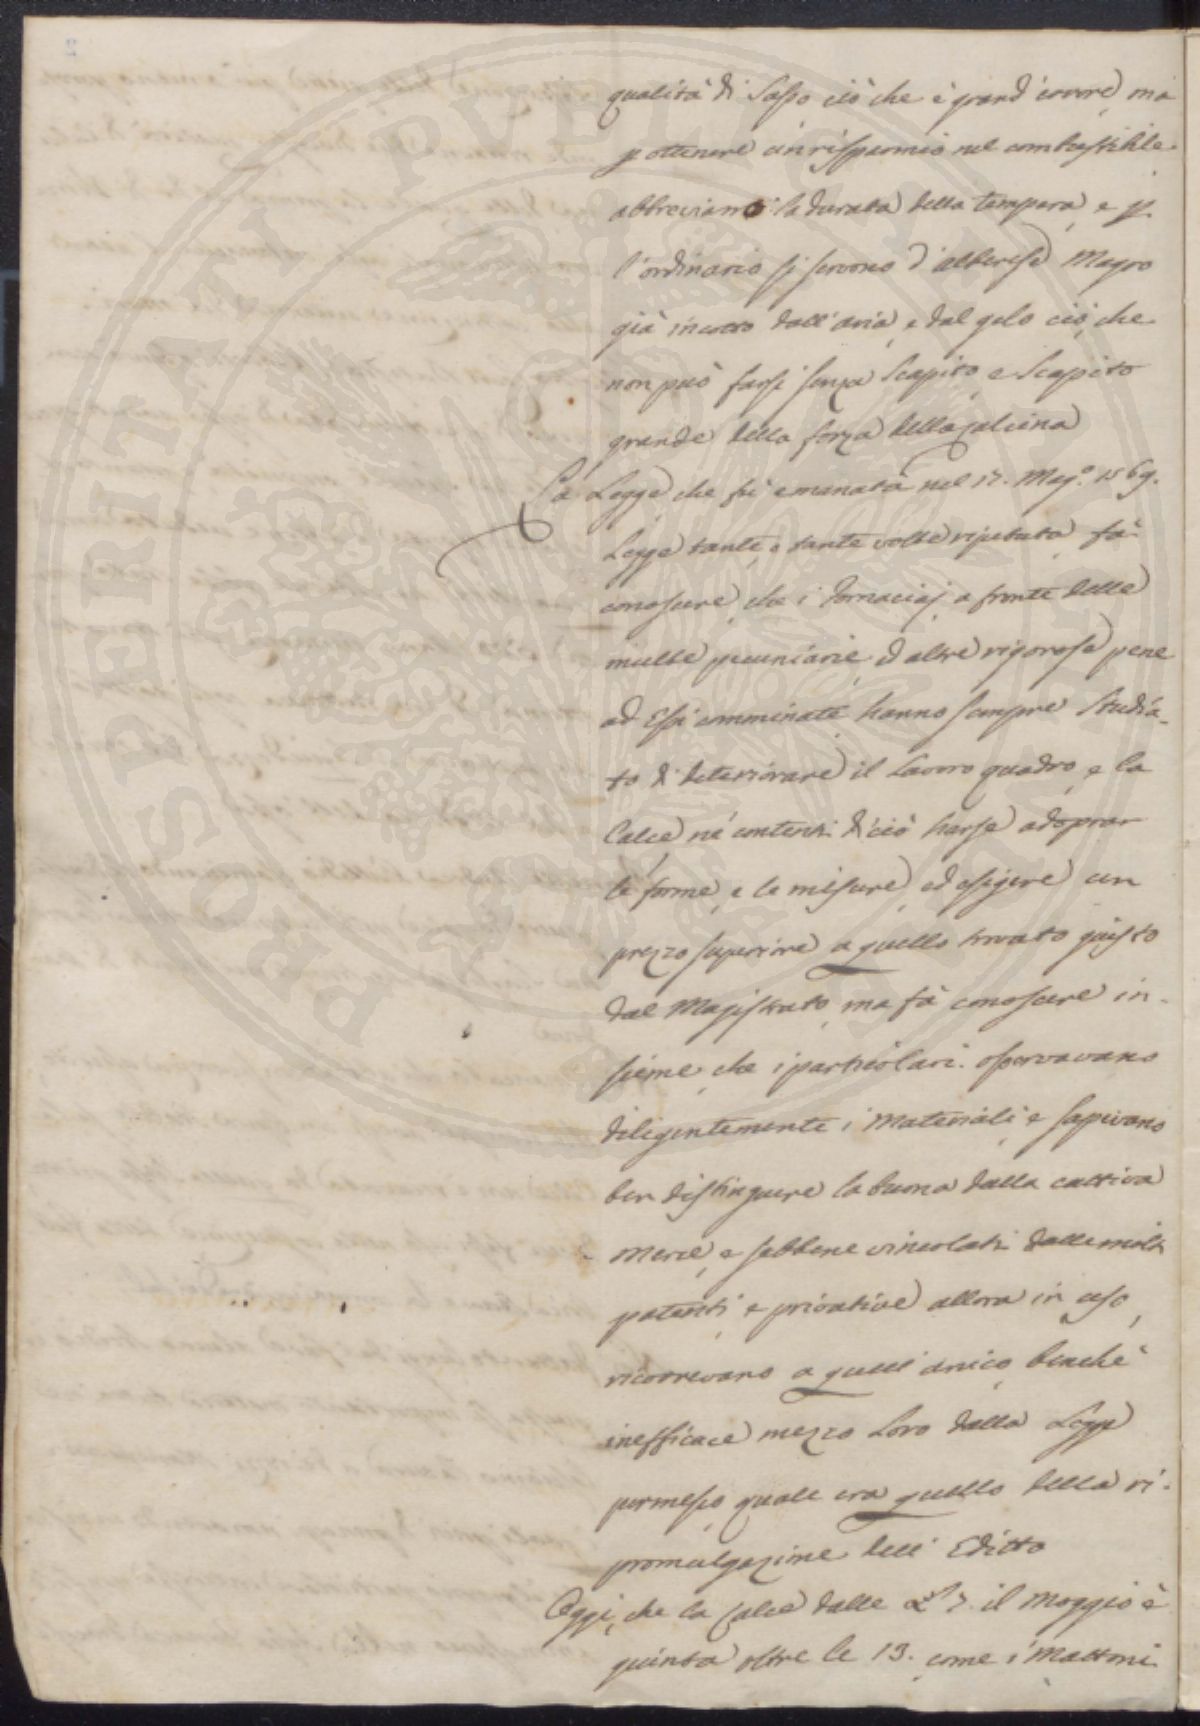 qualità di Sasso ciò che è grand' errore, ma
p ottenere un risparmio nel combustibile
abbreviano la durata della tempera, e p
l'ordinario si servono d'alberese Magro
già incotto dall'aria, e dal gelo ciò, che
non può farsi senza scapito, e scapito
grande della forza della calcina
La Legge, che fù emanata nel 17. Mag.º 1569.
Legge tante, e tante volte ripetuta, fà
conoscere, che i Fornaciaj a fronte delle
multe pecuniarie, ed altre rigorose pene
ad Essi comminate hanno sempre studia-
to di deteriorare il Lavoro quadro, e la
Calce né contenti di ciò harse adoprar
le forme, e le misure, ed esigere un
prezzo superiore a quello trovato giusto
dal Magistrato, ma fà conoscere in-
sieme, che i particolari osservavano
diligentemente i Materiali, e sapevano
ben distinguere la buona dalla cattiva
Merce, e sebbene vincolati dalle molte
patenti, e privative allora in uso,
ricorrevano a quell'unico, benchè
inefficace mezzo Loro dalla Legge
permesso, quale era quello della ri-
promulgazione dell'Editto
Oggi, che la Calce dalle £ 7. il Moggio è
giunta oltre le 13. come i Mattoni
PROSPERITATI PVBLICAE